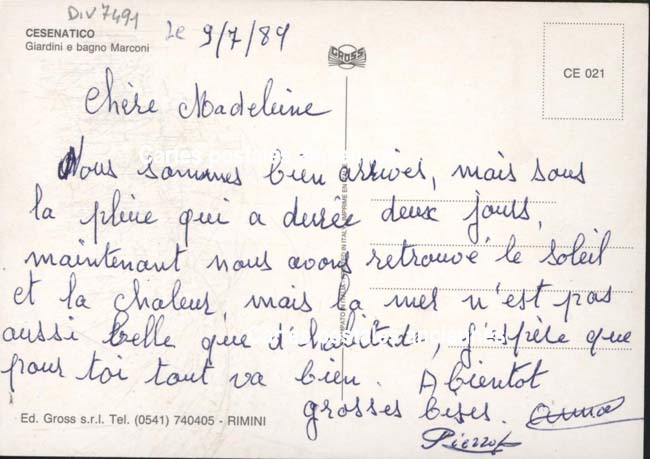 Div 7491
CESENATICO
Giardini e bagno Marconi
le 9/7/89
GROSS
CE 021
Chère Madeleine
Nous sommes bien arrivés, mais sous
la pluie qui a durée deux jours,
maintenant nous avons retrouvé le soleil
et la chaleur, mais la mer n'est pas
aussi belle que d'habitude, j'espère que
pour toi tout va bien. A bientot
grosses bises. Anna
Pierrot
Ed. Gross s.r.l. Tel. (0541) 740405 - RIMINI